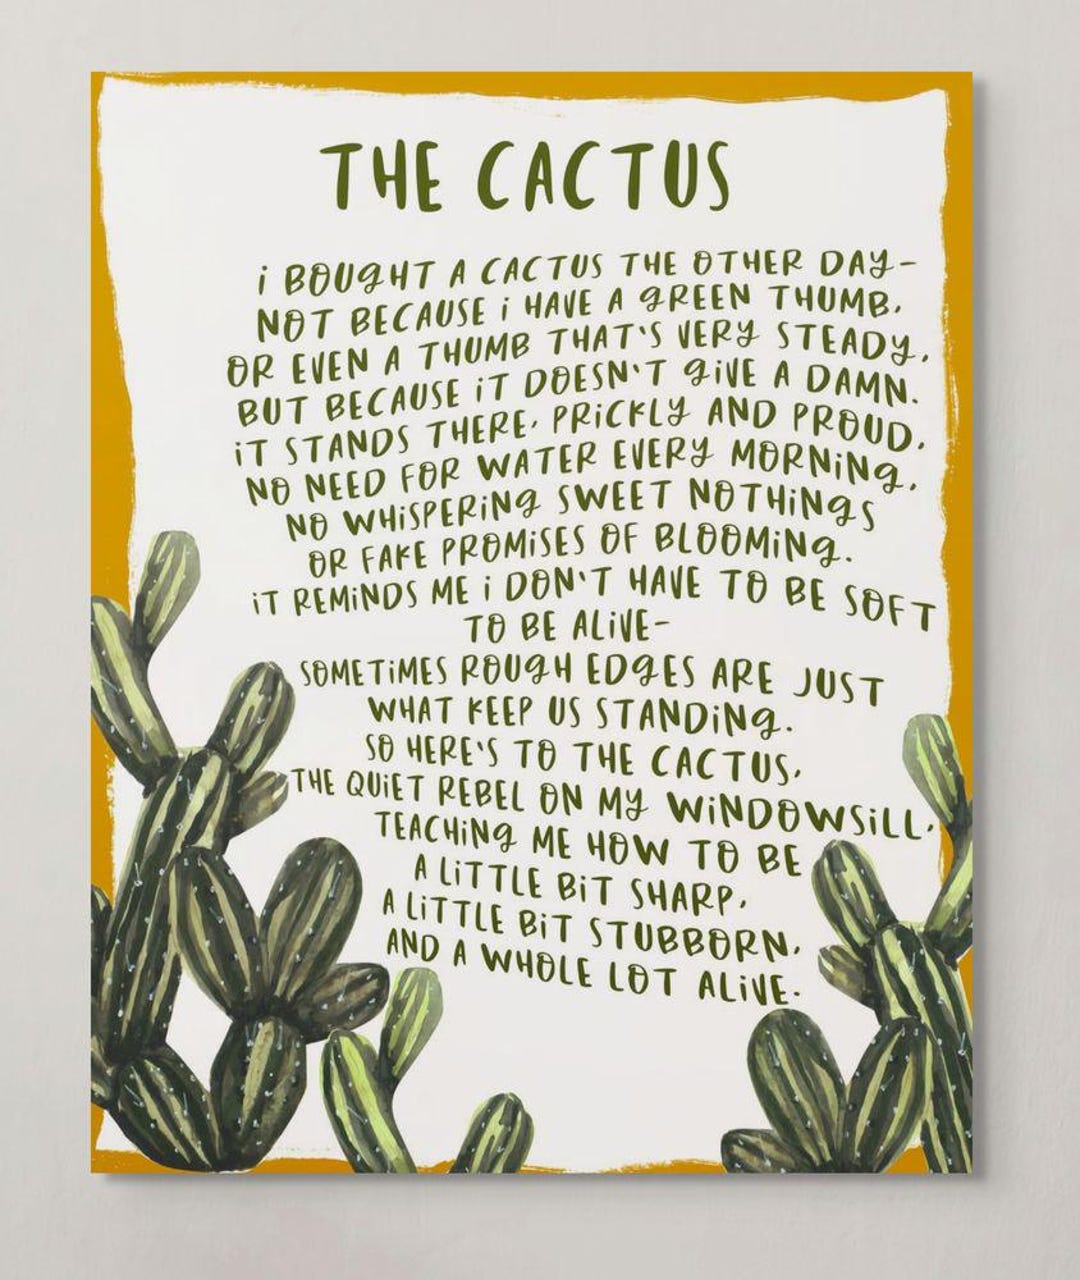 THE CACTUS
i BOUGHT A CACTUS THE OTHER DAY-
NOT BECAUSE i HAVE A GREEN THUMB,
OR EVEN A THUMB THAT'S VERY STEADY,
BUT BECAUSE iT DOESN'T GiVE A DAMN.
iT STANDS THERE, PRiCKLY AND PROUD,
NO NEED FOR WATER EVERY MORNiNG,
NO WHiSPERiNG SWEET NOTHiNGS
OR FAKE PROMiSES OF BLOOMiNG.
iT REMiNDS ME i DON'T HAVE TO BE SOFT
TO BE ALiVE-
SOMETiMES ROUGH EDGES ARE JUST
WHAT KEEP US STANDiNG.
SO HERE'S TO THE CACTUS,
THE QUiET REBEL ON MY WiNDOWSiLL,
TEACHiNG ME HOW TO BE
A LiTTLE BiT SHARP,
A LiTTLE BiT STUBBORN,
AND A WHOLE LOT ALiVE.